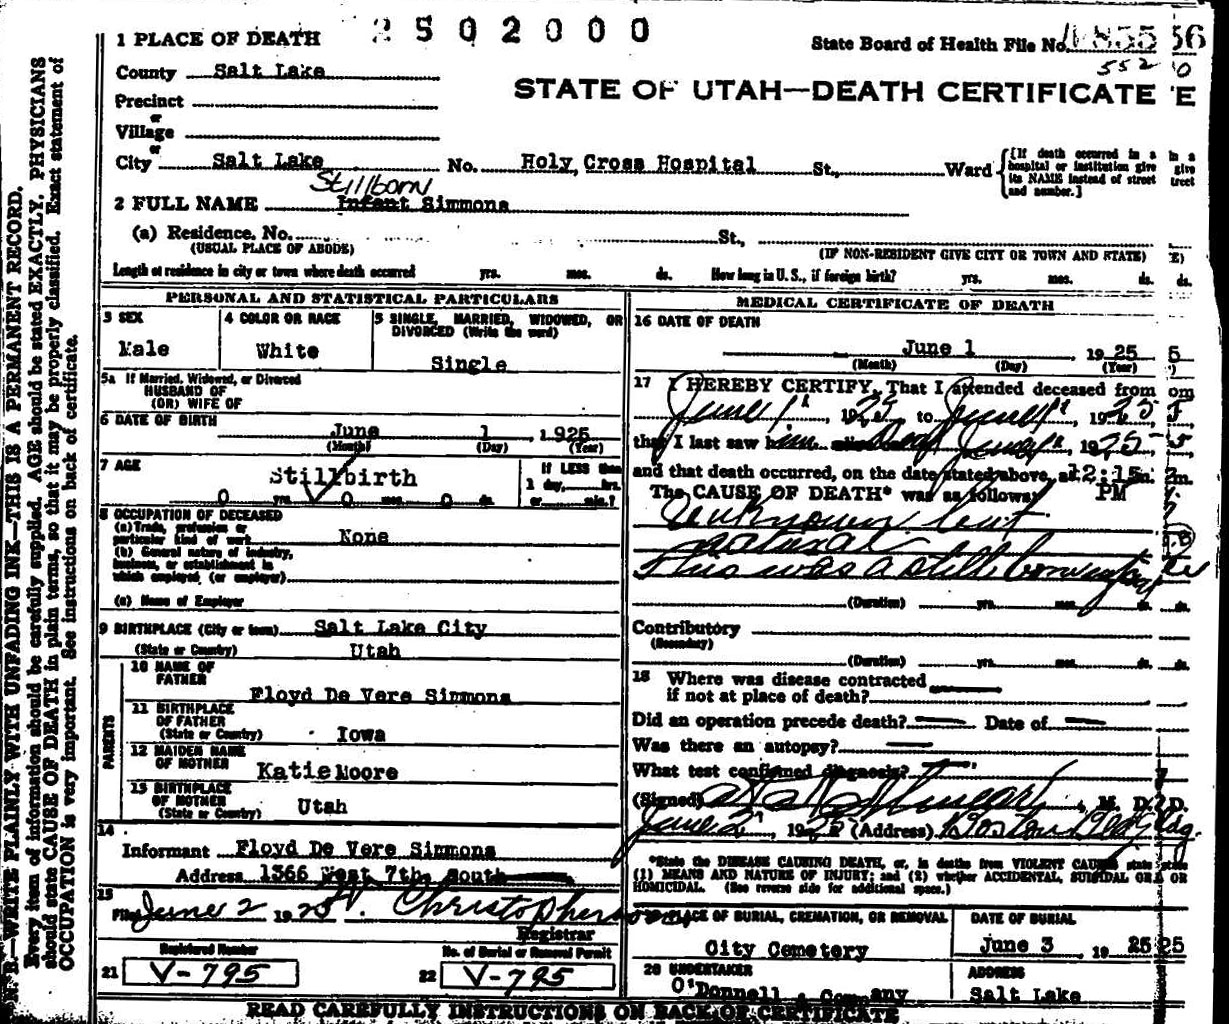 2502000
1 PLACE OF DEATH
State Board of Health File No.
552 0
County Salt Lake
STATE OF UTAH—DEATH CERTIFICATE E
Precinct
or
Village
or
City Salt Lake No. Holy Cross Hospital St., Ward {[If death occurred in a hospital or institution give its NAME instead of street and number.]
Stillborn
2 FULL NAME Infant Simmons
(a) Residence. No. St.,
(USUAL PLACE OF ABODE) (IF NON-RESIDENT GIVE CITY OR TOWN AND STATE)
Length of residence in city or town where death occurred yrs. mos. ds. How long in U. S., if foreign birth? yrs. mos. ds. ds.
PERSONAL AND STATISTICAL PARTICULARS
3 SEX 4 COLOR OR RACE 5 SINGLE, MARRIED, WIDOWED, OR DIVORCED (Write the word)
Male White Single
5a If Married, Widowed, or Divorced
HUSBAND OF
(OR) WIFE OF
6 DATE OF BIRTH
June 1 1925
(Month) (Day) (Year)
7 AGE Stillbirth If LESS than
1 day, hrs.
0 yrs. 0 mos. 0 ds. or min.?
8 OCCUPATION OF DECEASED
(a) Trade, profession or
particular kind of work None
(b) General nature of industry,
business, or establishment in
which employed (or employer)
(c) Name of Employer
9 BIRTHPLACE (City or town) Salt Lake City
(State or Country) Utah
PARENTS
10 NAME OF
FATHER
Floyd De Vere Simmons
11 BIRTHPLACE
OF FATHER
(State or Country) Iowa
12 MAIDEN NAME
OF MOTHER Katie Moore
13 BIRTHPLACE
OF MOTHER Utah
(State or Country)
14
Informant Floyd De Vere Simmons
Address 1366 West 7th, South
15
Filed June 2 1925 Christopherson
Registrar
Registered Number No. of Burial or Removal Permit
21 V-795 22 V-795
MEDICAL CERTIFICATE OF DEATH
16 DATE OF DEATH
June 1, 1925 5
(Month) (Day) (Year)
17 I HEREBY CERTIFY, That I attended deceased from om
June 1st, 1925 to June 1st 1925
that I last saw him June 1st 1925
and that death occurred, on the date stated above, at 12:15 m.
The CAUSE OF DEATH* was as follows: PM
Unknown but
natural
This was a still born infant
(Duration) yrs. mos. ds. ds.
Contributory
(Secondary)
(Duration) yrs. mos. ds. ds.
18 Where was disease contracted
if not at place of death?
Did an operation precede death? Date of
Was there an autopsy?
What test confirmed diagnosis?
(Signed) M. D. D.
June 2, 1925 (Address) Boston Bldg
*State the DISEASE CAUSING DEATH, or, in deaths from VIOLENT CAUSES state
(1) MEANS AND NATURE OF INJURY; and (2) whether ACCIDENTAL, SUICIDAL OR OR
HOMICIDAL. (See reverse side for additional space.)
19 PLACE OF BURIAL, CREMATION, OR REMOVAL DATE OF BURIAL
City Cemetery June 3 19 25 25
20 UNDERTAKER ADDRESS
O'Donnell & Company Salt Lake
READ CAREFULLY INSTRUCTIONS ON BACK OF CERTIFICATE
N. B.—WRITE PLAINLY WITH UNFADING INK—THIS IS A PERMANENT RECORD.
Every item of information should be carefully supplied. AGE should be stated EXACTLY. PHYSICIANS
should state CAUSE OF DEATH in plain terms, so that it may be properly classified. Exact statement of
OCCUPATION is very important. See instructions on back of certificate.